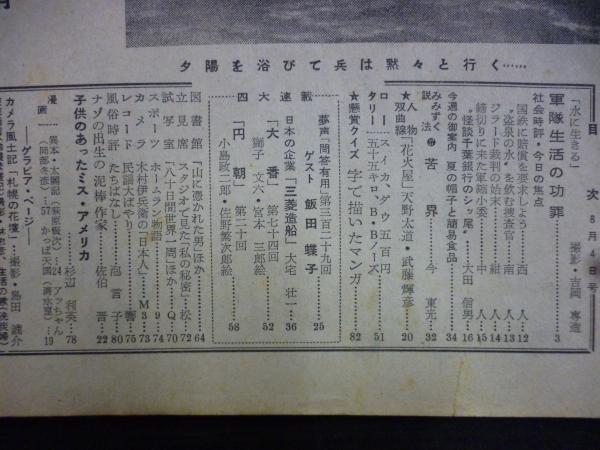 夕陽を浴びて兵は黙々と行く……
目次 8月4日号
「水に生きる」 撮影・吉岡専造
軍隊生活の功罪 3
社会時評・今日の焦点
国鉄に賠償を要求しよう 西 人 12
“盗泉の水”を飲む捜査官 南 人 13
ジラード裁判の始末 紺 人 14
締切りに来た軍縮小委 中 人 15
“怪談千葉銀行のシッ尾” 大田信男 16
今週の御案内 夏の帽子と簡易食品 34
みみずく説法 ② 苦界 今東光 32
★人物双曲線 「花火屋」天野太道・武藤輝彦 20
ロータリー スイカ、ダウ五百円 五十五キロ、B・Bノーズ 51
★懸賞クイズ 字で描いたマンガ 82
夢声「問答有用」第三百二十九回 ゲスト 飯田蝶子 25
四大連載
日本の企業「三菱造船」大宅壮一 36
「大番」第七十四回 獅子文六・宮本三郎絵 52
「円朝」第三十回 小島政二郎・佐野繁次郎絵 58
図書館 「山に憑かれた男」ほか 64
立見席 スタジオで見た「私の秘密」 松 72
試写室 「八十日間世界一周」ほか Q 70
スポーツ ホームラン物語 9 74
カメラ 木村伊兵衛の「日本人」 M3 73
レコード 民謡大ばやり 響 75
風俗時評 たちばなし 80
ナゾの出生の泥棒作家 佐伯晋 22
子供のあったミス・アメリカ 杉辺利英 78
漫画 異本・太閤記(荻原賢次)…24 アッちゃん(岡部冬彦)…57 かっぱ天国(清水崑) 19
―グラビア・ページ―
カメラ風土記「札幌の花壇」・撮影・島田謹介